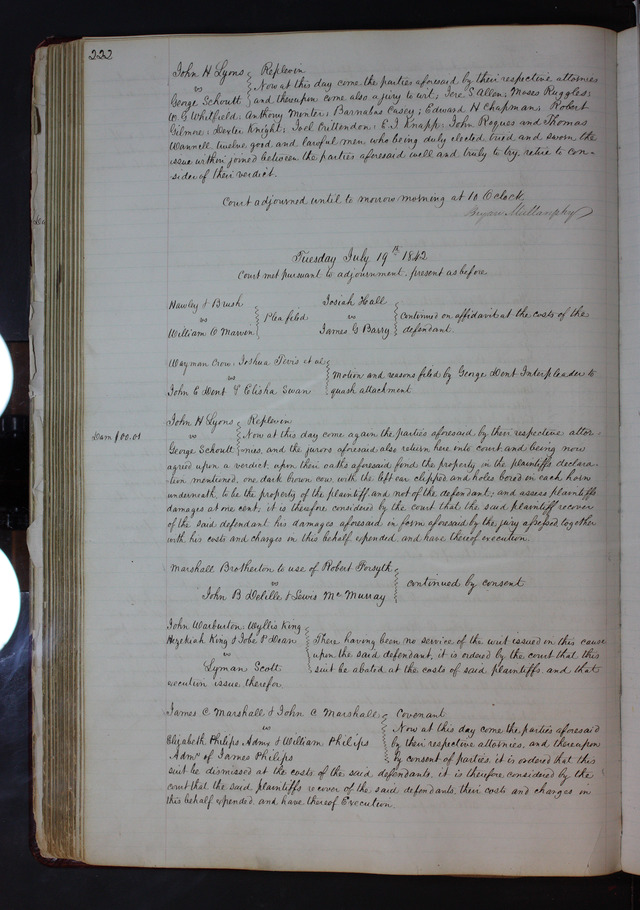 222
John H Lyons } Replevin
vs } Now at this day come the parties aforesaid by their respective attornies
George Schoults } and thereupon come also a jury to wit; Jere S Allen; Moses Ruggles;
W. G Whitfield; Anthony Menter; Barnabas Casey; Edward H Chapman; Robert
Gilmore; Dexter Knight; Joel Crittendon; E. I Knapp; John Roques and Thomas
Wannell twelve good and lawful men, who being duly elected tried and sworn the
issue within joined between the parties aforesaid well and truly to try, retire to con-
sider of their verdict.
Court adjourned until to morrow morning at 10 Oclock,
Bryan Mullanphy
Tuesday July 19th 1842
Court met pursuant to adjournment. present as before
Hawley & Brush } Plea filed
vs
William O Marven
Josiah Hall } Continued on affidavit at the costs of the
vs
James G Barry } defendant.
Wayman Crow, Joshua Tevis et al }
vs } Motion and reasons filed by George Dent Interpleader to
John C Dent & Elisha Swan } quash attachment
John H Lyons } Replevin
Dam $00.01
vs } Now at this day come again the parties aforesaid by their respective attor-
George Schoults } nies, and the jurors aforesaid also return here into court and being now
agreed upon a verdict, upon their oaths aforesaid fond the property in the plaintiffs declara-
tion mentioned, one dark brown cow, with the left ear clipped and holes bored in each horn
underneath, to be the property of the plaintiff and not of the defendant, and assess plaintiffs
damages at one cent; it is therefore considered by the court that the said plaintiff recover
of the said defendant his damages aforesaid in form aforesaid by the jury assessed together
with his costs and charges in this behalf expended, and have thereof execution.
Marshall Brotherton to use of Robert Forsyth }
vs } continued by consent
John B Delille & Lewis Mc Murray
John Warburton, Wyllis King
Hezekiah King & Jobe P Dean } There having been no service of the writ issued in this cause
vs } upon the said defendant, it is ordered by the court that this
Lyman Scott } suit be abated at the costs of said plaintiffs, and that
execution issue therefor
James C Marshall & John A Marshall } Covenant
vs } Now at this day come the parties aforesaid
Elizabeth Philips Admx & William Philips } by their respective attornies, and thereupon
Admr of James Philips } by consent of parties, it is ordered that this
suit be dismissed at the costs of the said defendants, it is therefore considered by the
court that the said plaintiffs recover of the said defendants, their costs and charges in
this behalf expended, and have thereof Execution.